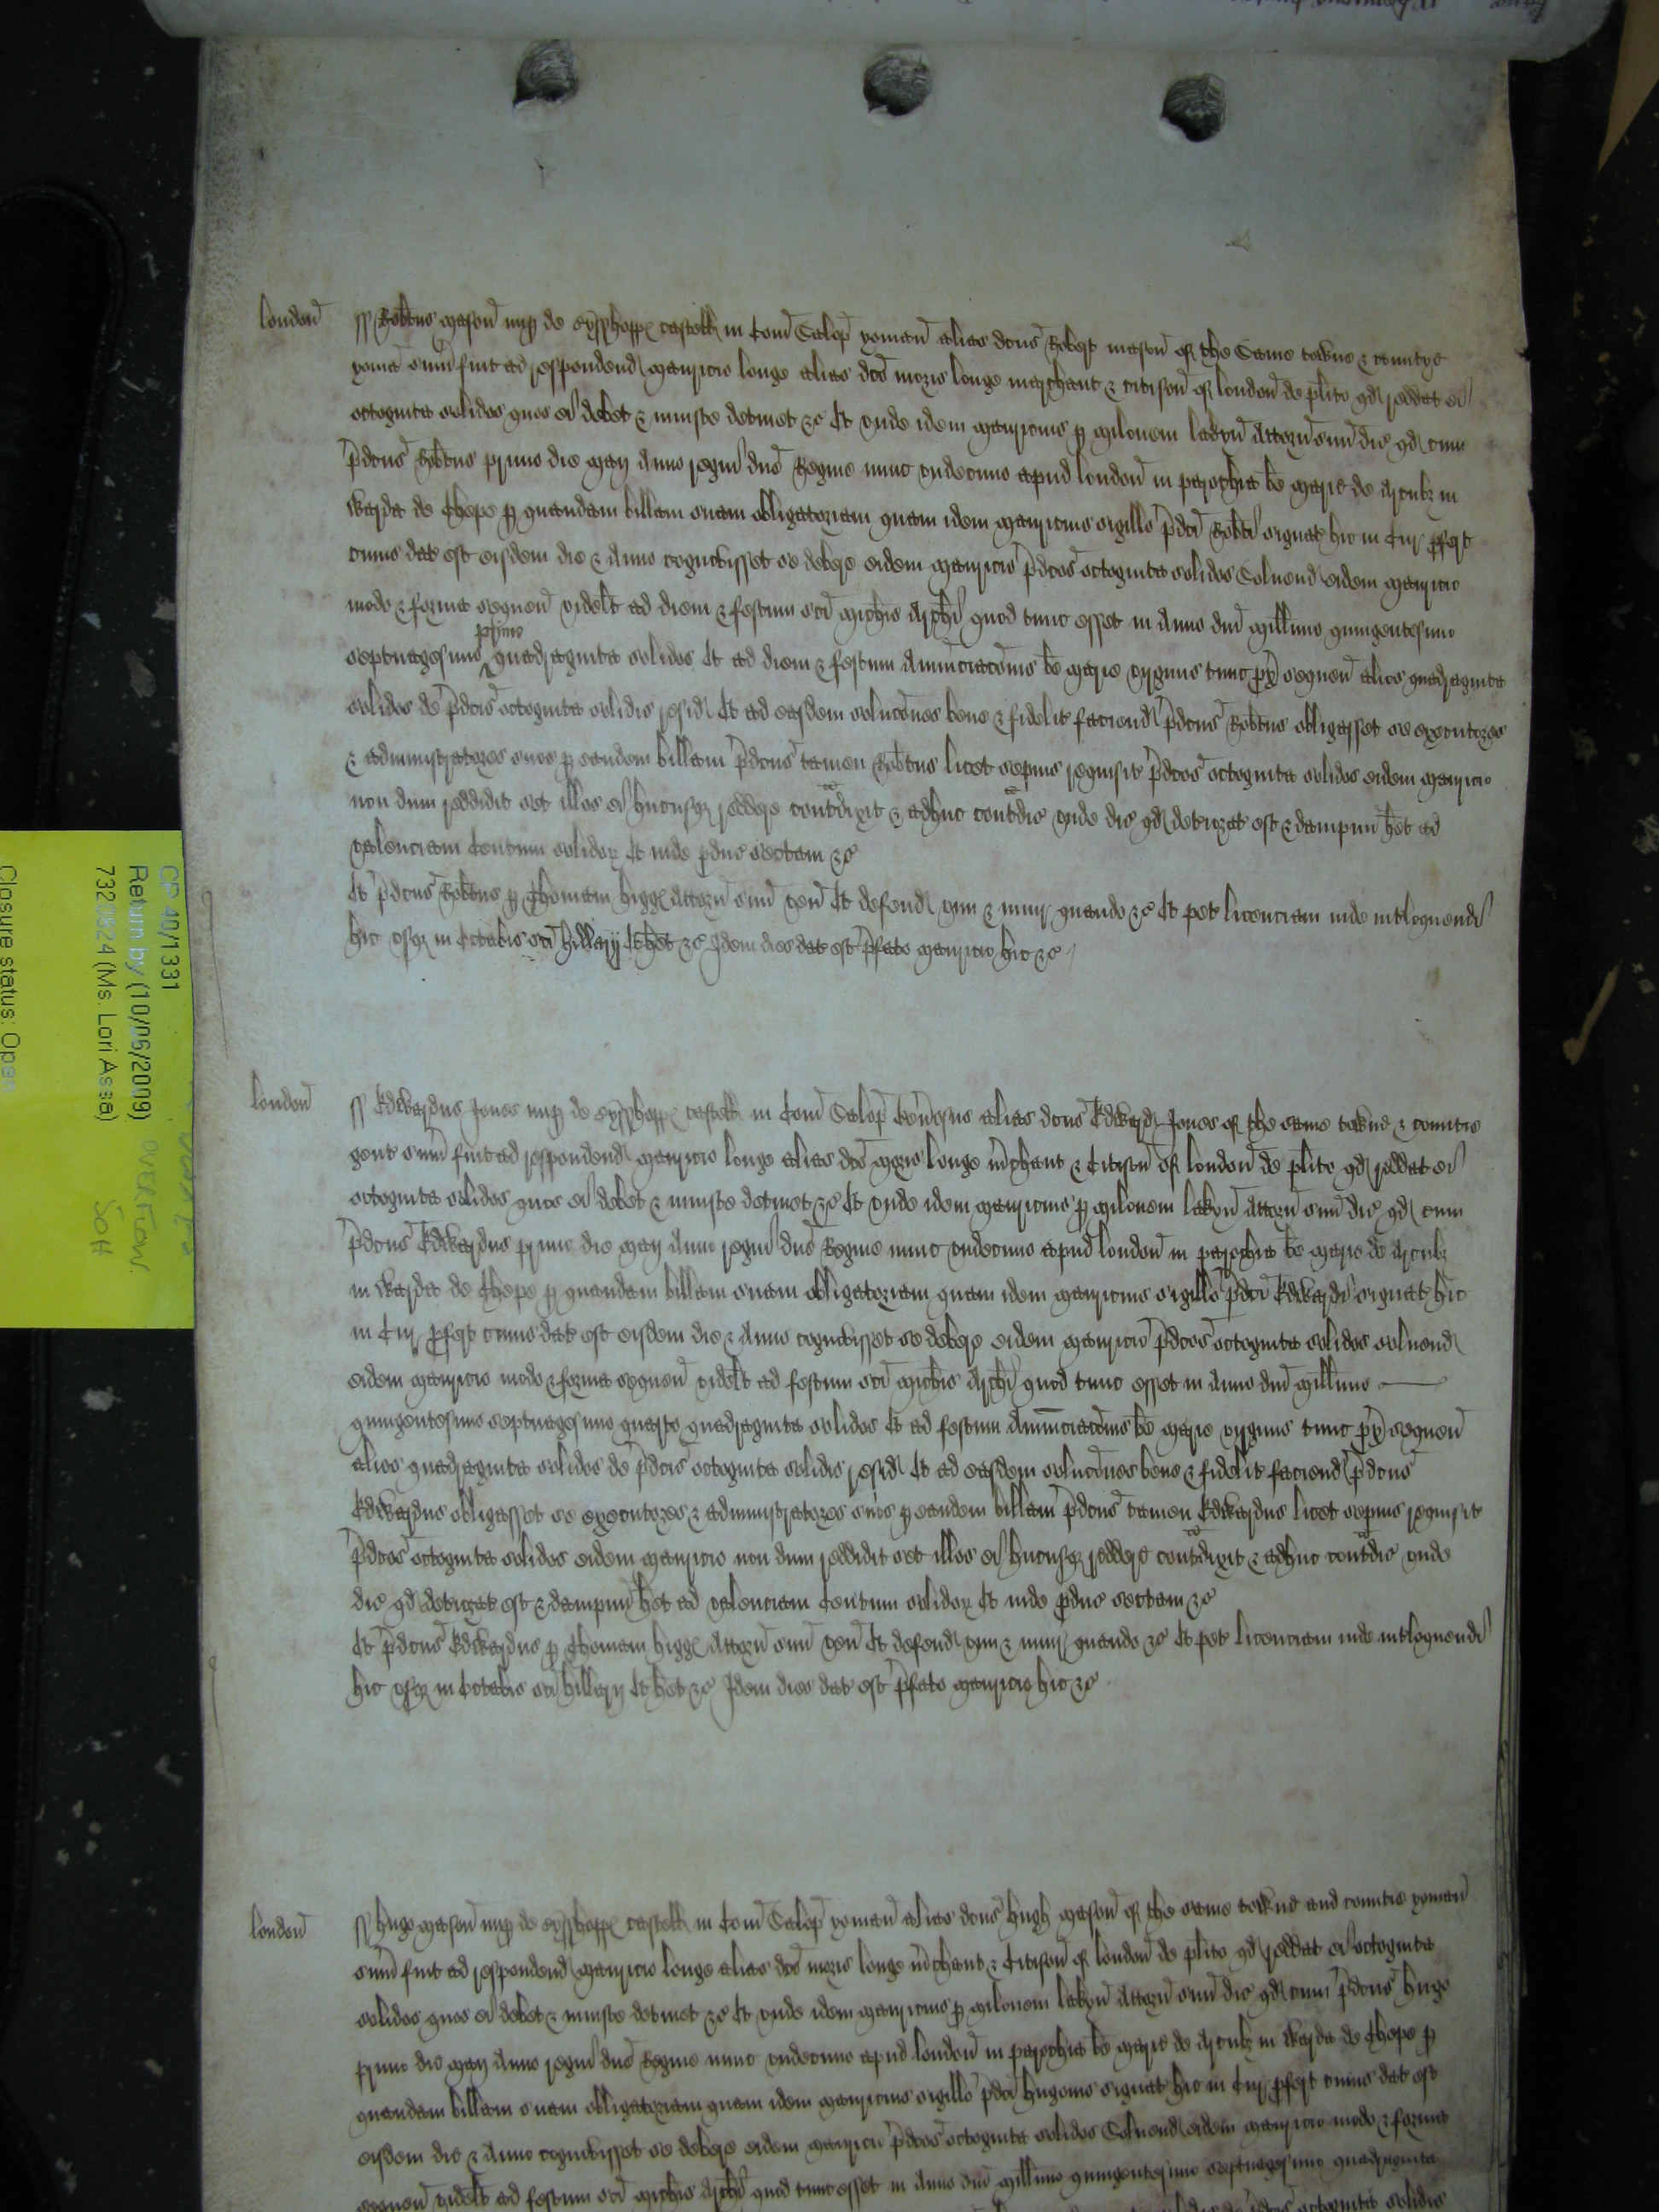 london̄ ss Rob̄tus Mason̄ nup de Bysshopps castell in Com̄ Salop̄ yoman̄ alias dcus Robert mason̄ of the Same towne & countye
yomā sum̄ fuit ad respondend Mauricio longe alias dc̄s moris longe marchant & citison̄ of london̄ de plito qd reddat ei
octoginta solidos quos ei debet & iniuste detinet &c Et unde idem Mauricius p Milonem lakyn̄ Attorn̄ suū dic qd cum
p̄dcus Rob̄tus primo die Maij Anno regni dn̄e Regine nunc undecimo apud london̄ in parochia be Marie de Arcubz in
Warda de Chepe p quandam billam suam obligatoriam quam idem Mauricius sigillo p̄dci Rob̄ti signat hic in Cur profert
cuius dat est eisdem die & Anno cognovisset se debere eidem Mauricio p̄dcos octoginta solidos Solvend eidem Mauricio
modo & forma sequen̄ videlt ad diem & festum sci Michis Archi quod tunc esset in Anno dni Millimo quingentesimo
septuagesimo primo quadraginta solidos Et ad diem & festum Annunciacōnis be Marie virginis tunc prox sequen̄ alios quadraginta
solidos de p̄dcis octoginta solidis resid Et ad easdem solucōnes bene & fidelit faciend p̄dcus Rob̄tus obligasset se executores
& administratores suos p eandem billam p̄dcus tamen Rob̄tus licet sepius requisit p̄dcos octoginta solidos eidem Mauricio
non dum reddidit set illos ei hucusqz reddere contradixit & adhuc contradic unde dic qd deteriorat est & dampnu het ad
valenciam Centum solidor Et inde producit sectam &c
Et p̄dcus Rob̄tus p Thomam higgs Attorn̄ suū ven̄ Et defend vim & iniur quando &c Et pet licenciam inde intloquendi
hic usqz in Octabis sci hillarij Et het &c Idem dies dat est p̄fato Mauricio hic &c
CP 40/1331
Return by (10/06/2009)
7320824 (Ms. Lori Assa)
Closure status: Open
OVERFLOW
london̄ ss Edwardus Jones nup de Bysshopps castell in Com̄ Salop̄ gen̄osus alias dcus Edward Jones of the same towne & countie
gent sum̄ fuit ad respondend Mauricio longe alias dc̄s Moris longe m̄chant & Citison̄ of london̄ de plito qd reddat ei
octoginta solidos quos ei debet & iniuste detinet &c Et unde idem Mauricius p Milonem lakyn̄ Attorn̄ suū dic qd cum
p̄dcus Edwardus primo die Maij Anno regni dn̄e Regine nunc undecimo apud london̄ in parochia be Marie de Arcubz
in Warda de Chepe p quandam billam suam obligatoriam quam idem Mauricius sigillo p̄dci Edwardi signat hic
in Cur profert cuius dat est eisdem die & Anno cognovisset se debere eidem Mauricio p̄dcos octoginta solidos solvend
eidem Mauricio modo & forma sequen̄ videlt ad festum sci Michis Archi quod tunc esset in Anno dni Millimo
quingentesimo septuagesimo quarto quadraginta solidos Et ad festum Annunciacōnis be Marie virginis tunc prox sequen̄
alios quadraginta solidos de p̄dcis octoginta solidis resid Et ad easdem solucōnes bene & fidelit faciend p̄dcus
Edwardus obligasset se executores & administratores suos p eandem billam p̄dcus tamen Edwardus licet sepius requisit
p̄dcos octoginta solidos eidem Mauricio non dum reddidit set illos ei hucusqz reddere contradixit & adhuc contradic unde
dic qd deteriorat est & dampnu het ad valenciam Centum solidor Et inde producit sectam &c
Et p̄dcus Edwardus p Thomam higgs Attorn̄ suū ven̄ Et defend vim & iniur quando &c Et pet licenciam inde intloquendi
hic usqz in Octabis sci hillarij Et het &c Idem dies dat est p̄fato Mauricio hic &c
london̄ ss hugo Mason̄ nup de Bysshopps castell in Com̄ Salop̄ yoman̄ alias dcus hugh Mason̄ of the same towne and countie yoman̄
sum̄ fuit ad respondend Mauricio longe alias dc̄s moris longe m̄chant & Citison̄ of london̄ de plito qd reddat ei octoginta
solidos quos ei debet & iniuste detinet &c Et unde idem Mauricius p Milonem lakyn̄ Attorn̄ suū dic qd cum p̄dcus hugo
primo die Maij Anno regni dn̄e Regine nunc undecimo apud london̄ in parochia be Marie de Arcubz in Warda de Chepe p
quandam billam suam obligatoriam quam idem Mauricius sigillo p̄dci hugonis signat hic in Cur profert cuius dat est
eisdem die & Anno cognovisset se debere eidem Mauricio p̄dcos octoginta solidos Solvend eidem Mauricio modo & forma
sequen̄ videlt ad festum sci Michis Archi quod tunc esset in Anno dni Millimo quingentesimo septuagesimo quadraginta
octoginta solidis